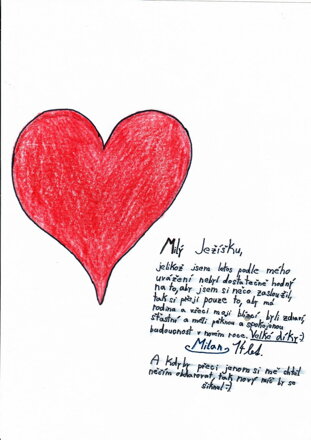 Milý Ježíšku,
jelikož jsem letos podle mého
uvážení nebyl dostatečně hodný
na to, aby jsem si něco zasloužil,
tak si přeji pouze to, aby má
rodina a všeci mojí blízcí, byli zdraví,
šťastní a měli pěknou a spokojenou
budoucnost v novém roce. Velké díky :)
Milan 14 let.
A kdyby přeci janom si mě chtěl
něčím obdarovat, tak nový míč by se
šiknul :-)